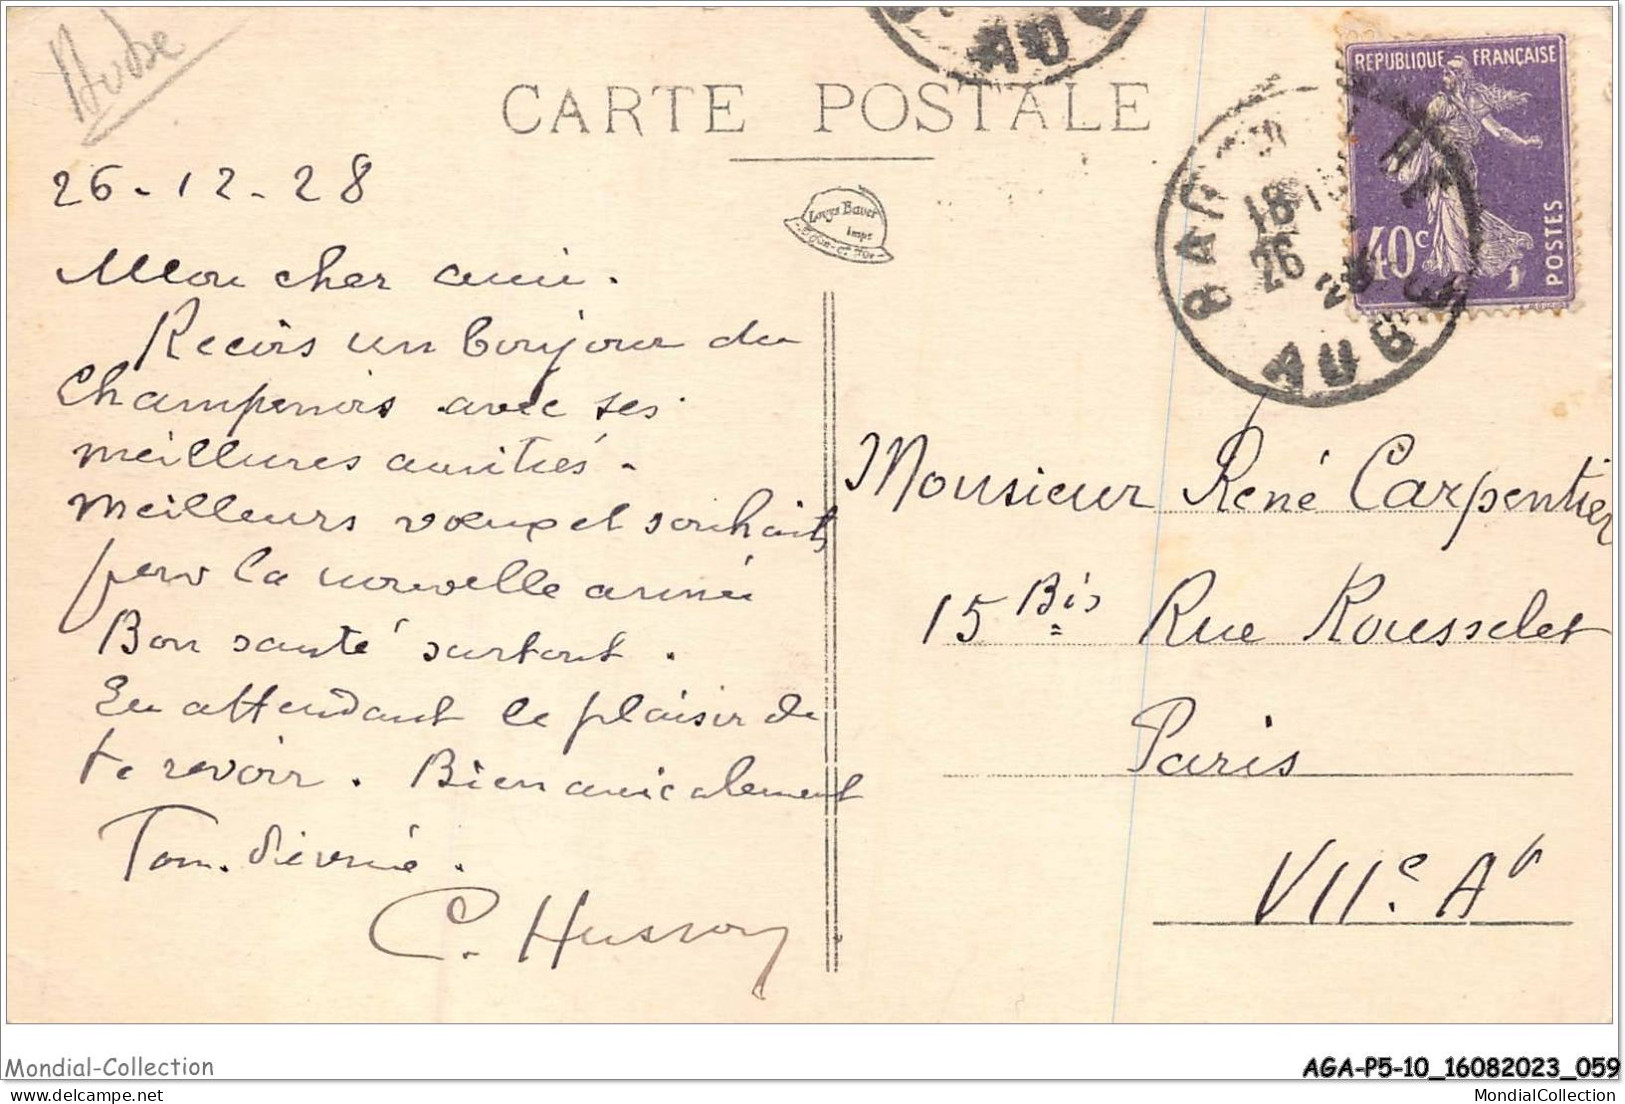 Aube
CARTE POSTALE
REPUBLIQUE FRANÇAISE
40c
POSTES
BAR
18
26
AUBE
AUB
Louys Bauer
Imps
Dijon
26-12-28
Mon cher ami.
Recois un bonjour du
Champenois avec ses
meilleures amitiés.
Meilleurs vœux et souhaits
pour la nouvelle année
Bon santé surtout.
En attendant le plaisir de
te revoir. Bien amicalement
Ton
C. Husson
Monsieur René Carpentier
15 Bis Rue Rousselet
Paris
VIIe Ar
Mondial-Collection
AGA-P5-10_16082023_059
MondialCollection